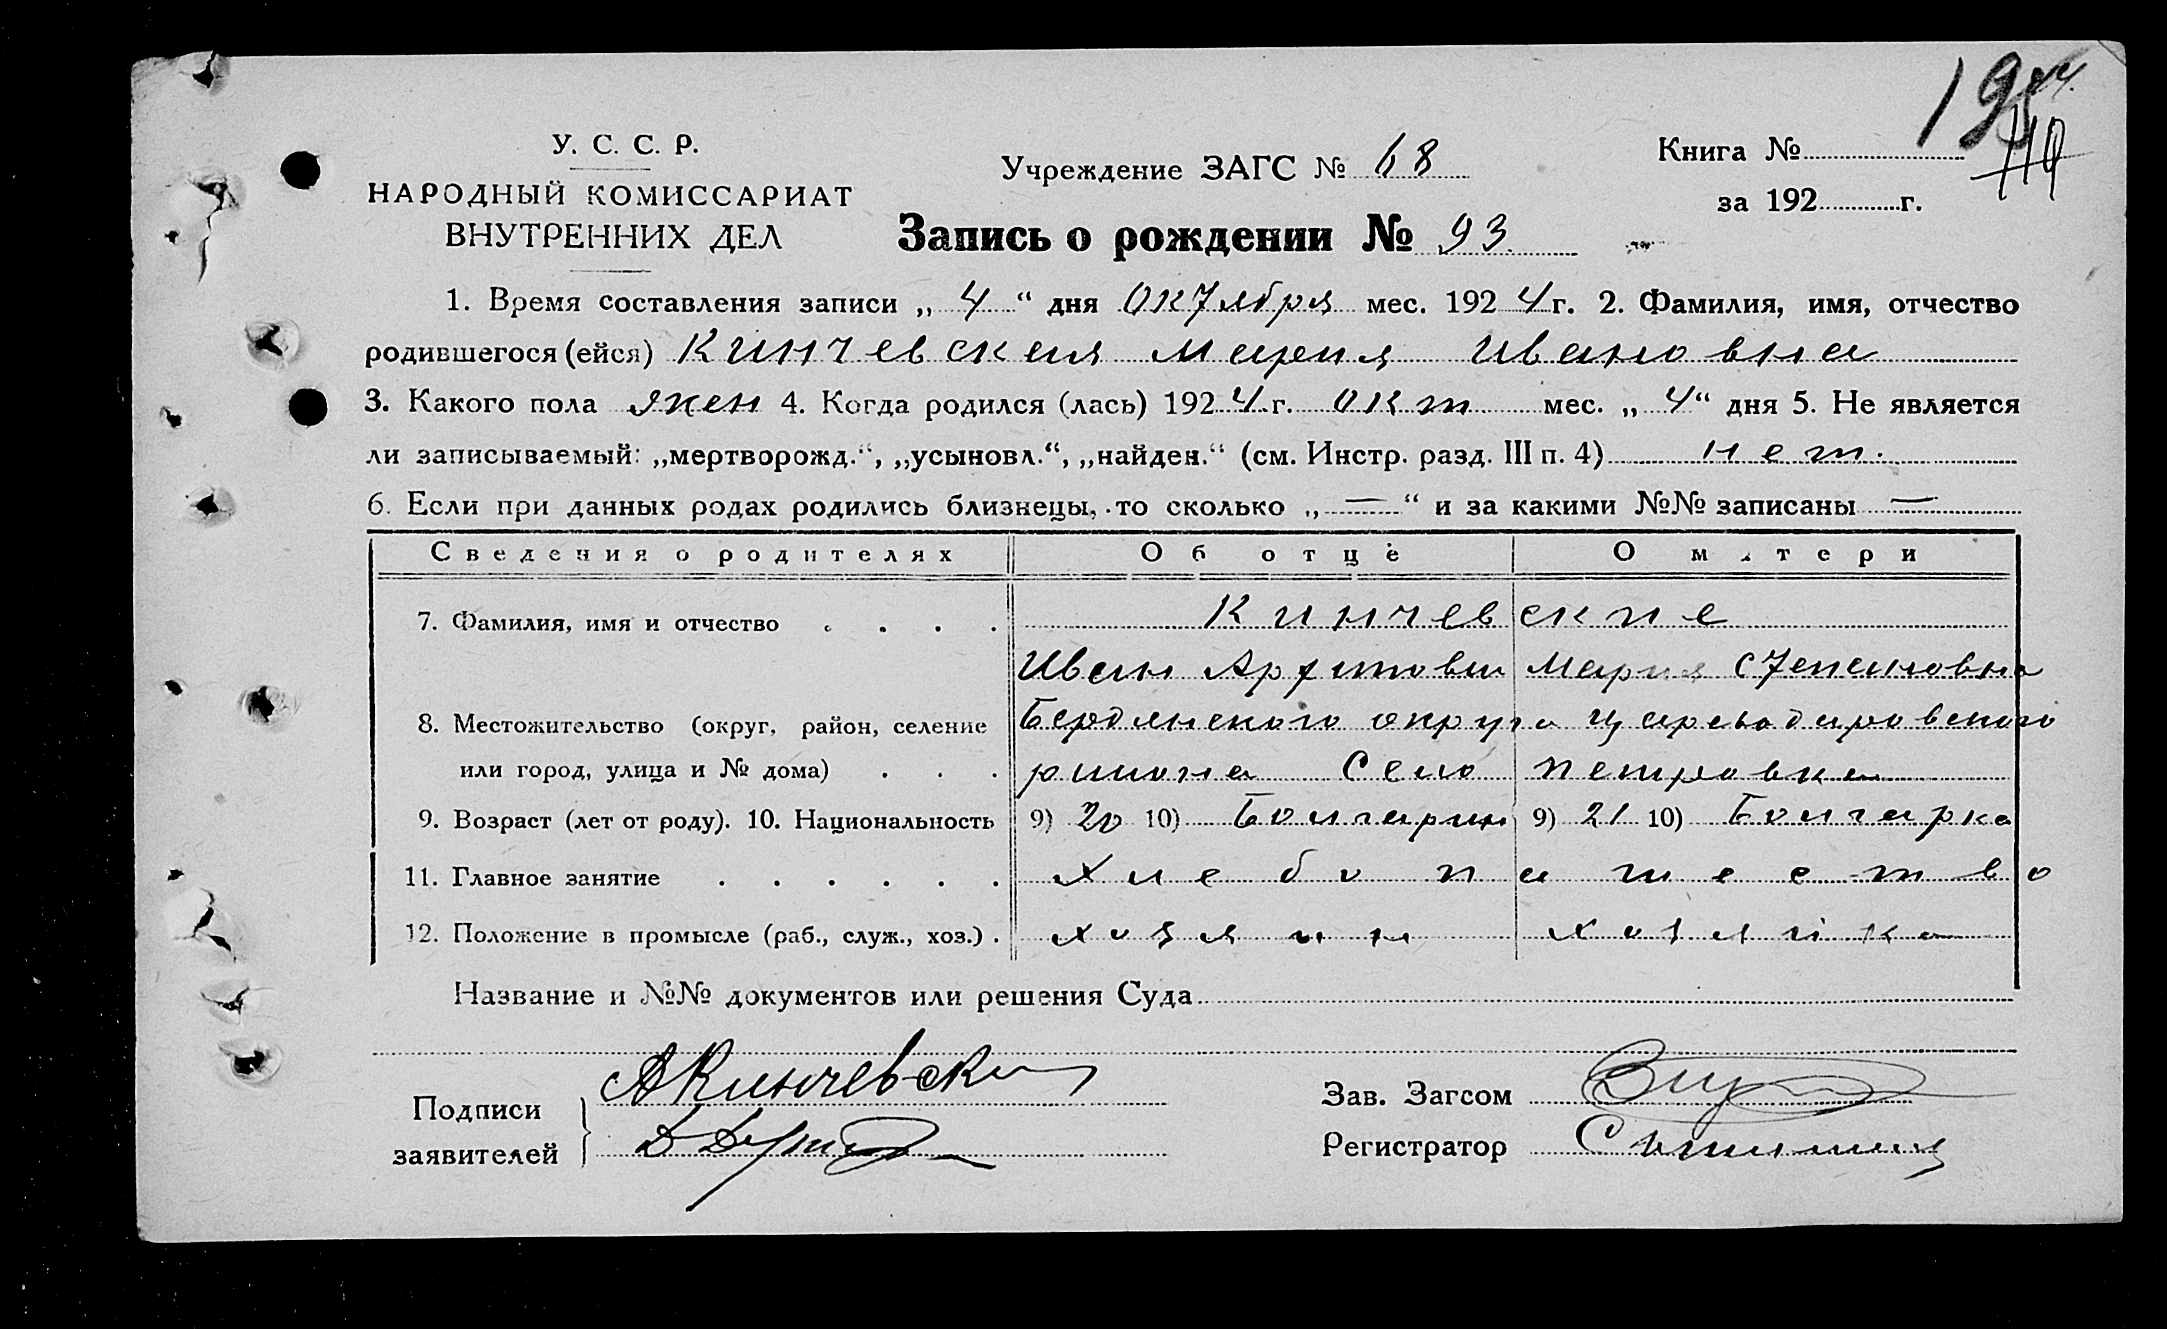 У. С. С. Р.
НАРОДНЫЙ КОМИССАРИАТ
ВНУТРЕННИХ ДЕЛ
Учреждение ЗАГС № 68
Книга №
за 192 г.
Запись о рождении № 93
1. Время составления записи „ 4 “ дня Октября мес. 192 4 г. 2. Фамилия, имя, отчество
родившегося (ейся) Кинчевская Мария Ивановна
3. Какого пола жен 4. Когда родился (лась) 192 4 г. окт мес. „ 4 “ дня 5. Не является
ли записываемый: „мертворожд.“, „усыновл.“, „найден.“ (см. Инстр. разд. III п. 4) нет.
6. Если при данных родах родились близнецы, то сколько „ — “ и за какими №№ записаны —
Сведения о родителях Об отце О матери
7. Фамилия, имя и отчество . . . . Кинчевские
Иван Мария Степановна
8. Местожительство (округ, район, селение Бердянского округа
или город, улица и № дома) . . . района Село Петровка
9. Возраст (лет от роду). 10. Национальность 9) 20 10) Болгарин 9) 21 10) Болгарка
11. Главное занятие . . . . . . Хлебопашество
12. Положение в промысле (раб., служ., хоз.) . хозяин хозяйка
Название и №№ документов или решения Суда
Подписи
заявителей
АКинчевский
Зав. Загсом
Регистратор